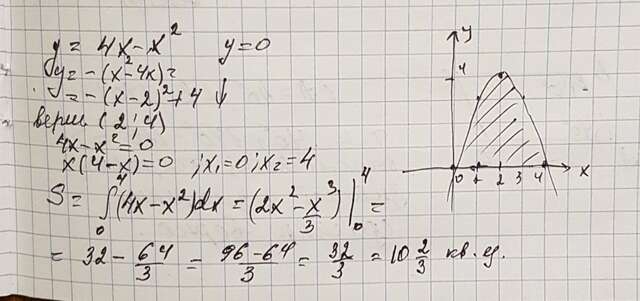 y = 4x - x² y = 0
y = -(x² - 4x) =
= -(x - 2)² + 4 ↓
верш (2; 4)
4x - x² = 0
x(4 - x) = 0 ; x₁ = 0 ; x₂ = 4
S = ∫₀⁴ (4x - x²)dx = (2x² - x³/3) |₀⁴ =
= 32 - 64/3 = (96 - 64)/3 = 32/3 = 10 2/3 кв. ед.
y
4
0 1 2 3 4 x